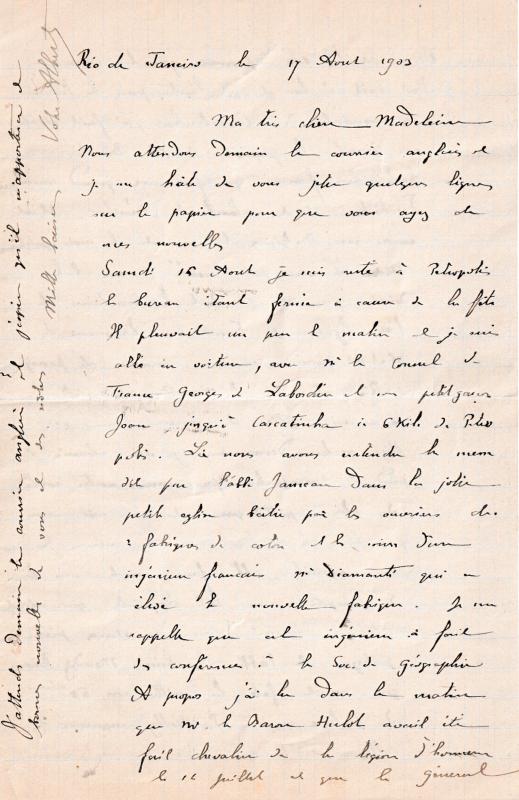 Rio de Janeiro le 17 Aout 1903
Ma très chère Madeleine
Nous attendons demain le courrier anglais et
je me hâte de vous jeter quelques lignes
sur le papier pour que vous ayez de
mes nouvelles
Samedi 15 Aout je suis resté à Petropolis
le bureau étant fermé à cause de la fête
Il pleuvait un peu le matin et je suis
allé en voiture, avec Mr le Consul de
France Georges et son petit garçon
Jean jusqu'à Cascatinha à 6 Kil. de Petro
polis. Là nous avons entendu la messe
dite par l'abbé dans la jolie
petite église bâtie par les ouvriers des
2 fabriques de coton et les soins d'un
ingénieur français Mr Diamanti qui a
élevé la nouvelle fabrique. Je me
rappelle que cet ingénieur a fait
des conférences à la Soc. de géographie
A propos j'ai lu dans le matin
que Mr. le Baron Hulot avait été
fait chevalier de la légion d'honneur
le 14 juillet et que le général
J'attends demain le courrier anglais et j'espère qu'il m'apportera de
bonnes nouvelles de vous et des nôtres
Mille baisers Votre Albert